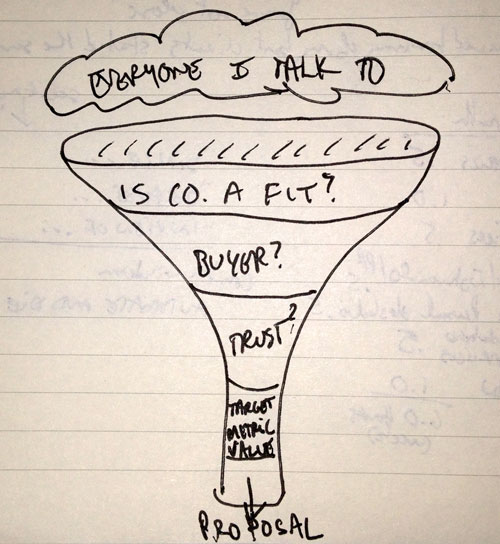 EVERYONE I TALK TO
IS CO. A FIT?
BUYER?
TRUST?
TARGET
METRIC
VALUE
PROPOSAL